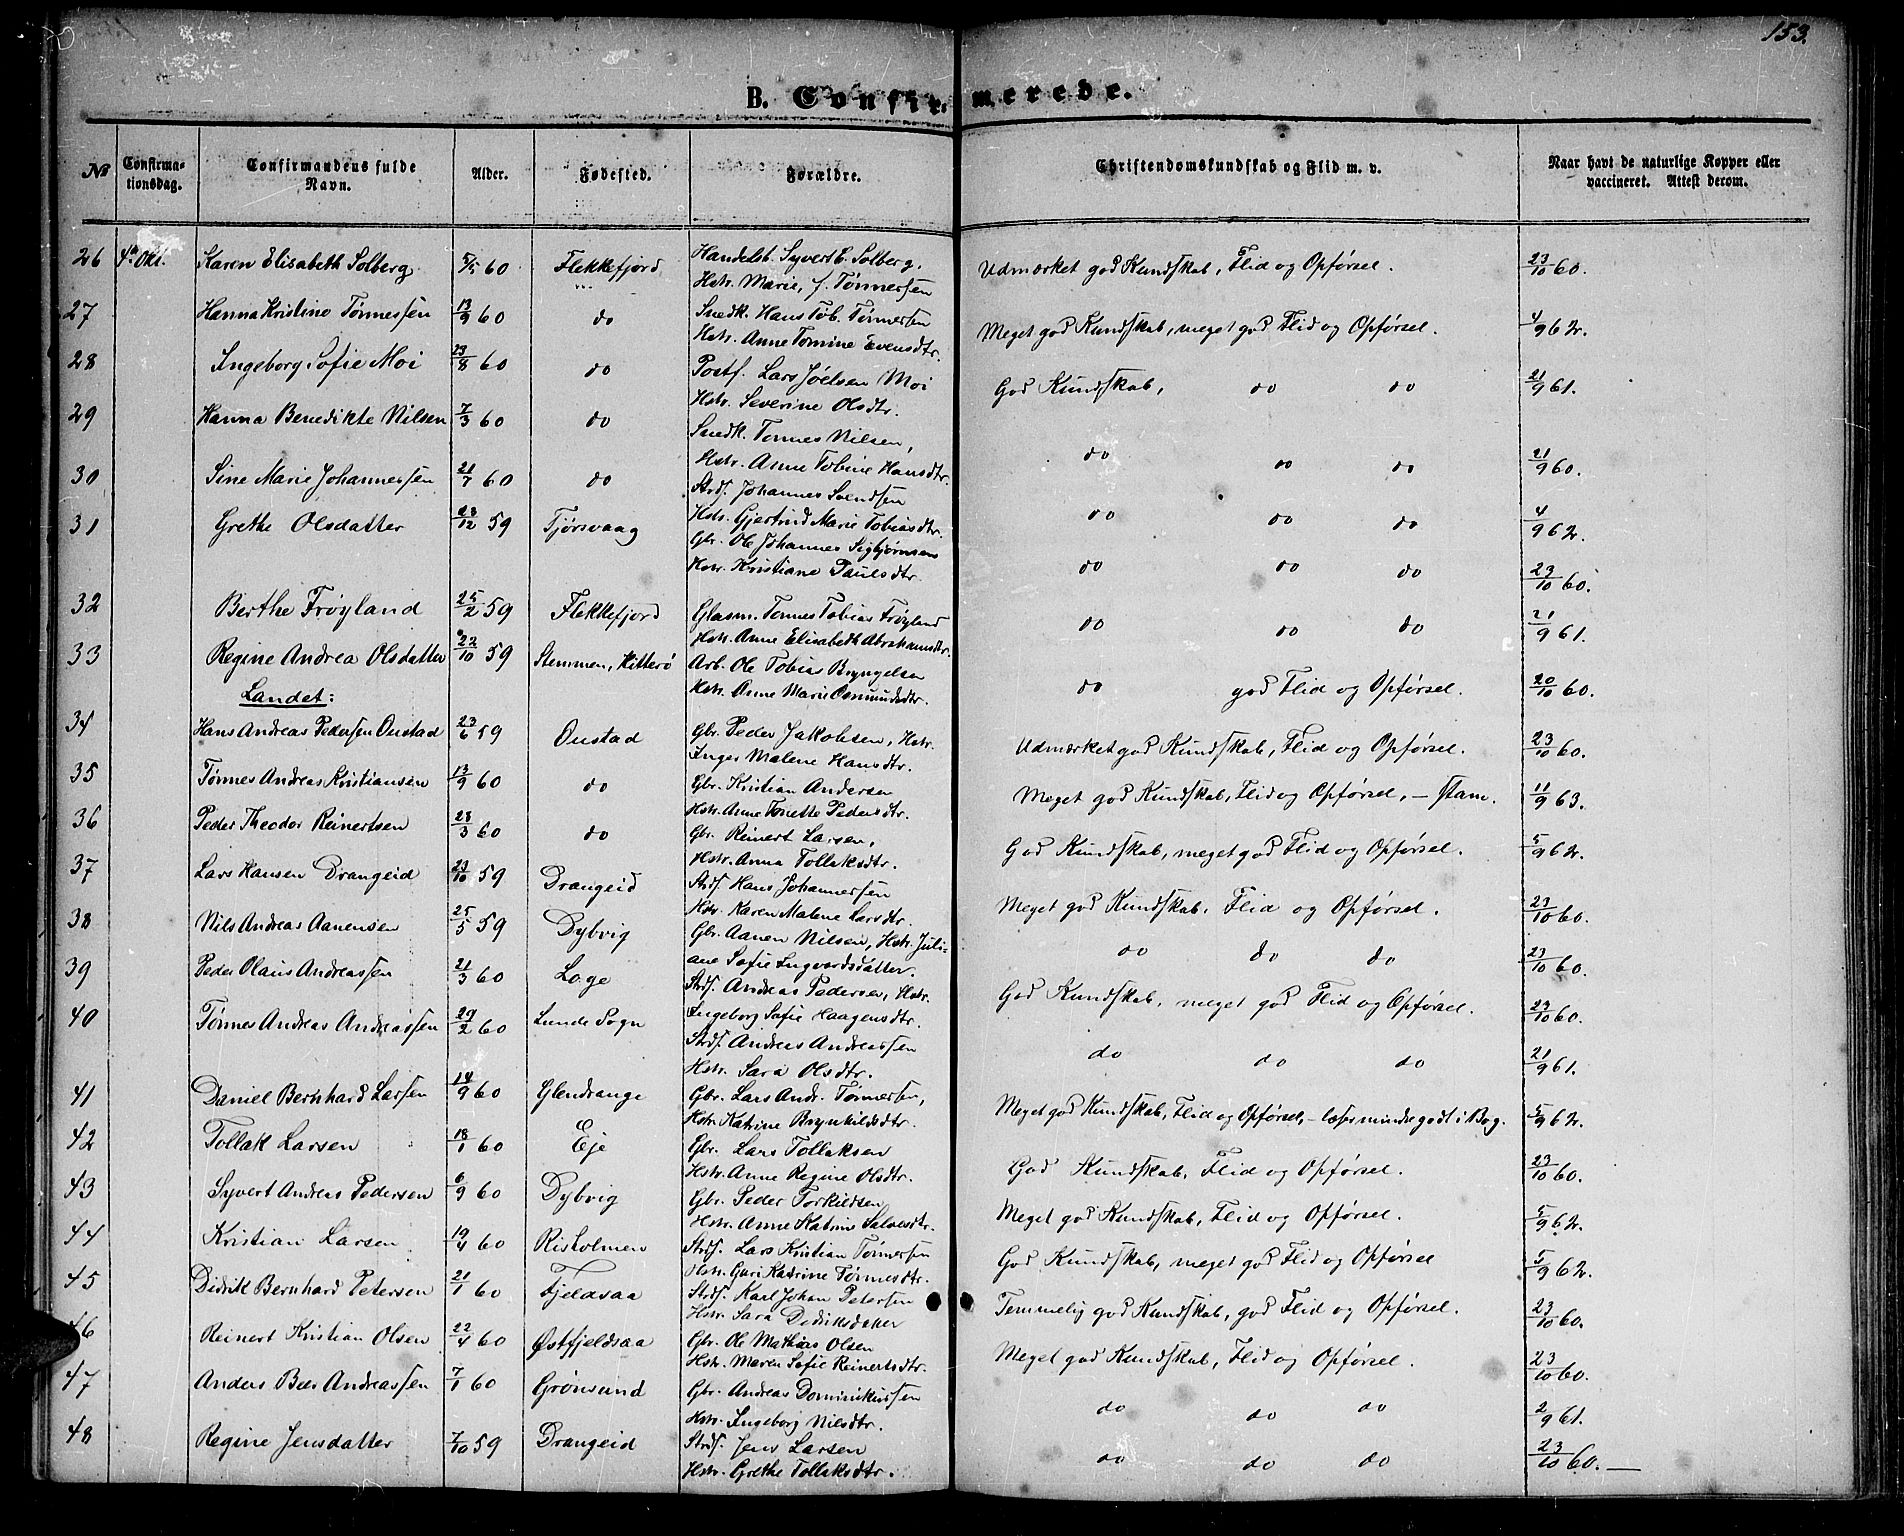 153.
B. Confirmerede.
№ Confirmationsdag. Confirmandens fulde Navn. Alder. Fødested. Forældre. Christendomskundskab og Flid m. v. Naar havt de naturlige Kopper eller vaccineret. Attest derom.
26 4de Okt. Karen Elisabeth Solberg 5/5 60 Flekkefjord Handelsb. Syvert B. Solberg, Udmærket god Kundskab, Flid og Opførsel. 23/10 60.
Hstr. Marie, f. Tønnessen
27 Hanna Kristine Tønnessen 13/9 60 do Snedk. Hans Tob. Tønnessen Meget god Kundskab, meget god Flid og Opførsel. 4/9 62.
Hstr. Anne Tomine Evensdtr.
28 Ingeborg Sofie Moi 23/8 60 do Postf. Lars Joelsen Moi God Kundskab, do do 21/9 61.
Hstr. Severine Olsdtr.
29 Hanna Benedikte Nilsen 7/3 60 do Snedk. Tønnes Nilsen, do do do 21/9 60.
Hstr. Anne Tobine Hansdtr.
30 Sine Marie Johannessen 21/7 60 do Strds. Johannes Svendsen do do do 4/9 62.
Hstr. Gjertrud Marie Tobiasdtr.
31 Grethe Olsdatter 28/12 59 Tjørsvaag Gbr. Ole Johannes Sigbjørnsen do do do 23/10 60.
Hstr. Kristiane Paulsdtr.
32 Berthe Frøyland 25/2 59 Flekkefjord Glasm. Tønnes Tobias Frøyland do do do 21/9 61.
Hstr. Anne Elisabeth Abrahamsdtr.
33 Regine Andrea Olsdatter 22/10 59 Stemmen, Hitterø Arb. Ole Tobias Bryngelsen do god Flid og Opførsel. 20/10 60.
Hstr. Anne Marie Osmundsdtr.
Landet:
34 Hans Andreas Pedersen Oustad 23/6 59 Oustad Gbr. Peder Jakobsen, Hstr. Udmærket god Kundskab, Flid og Opførsel. 23/10 60.
Inger Malene Hansdtr.
35 Tønnes Andreas Kristiansen 13/9 60 do Gbr. Kristian Andersen Meget god Kundskab, Flid og Opførsel, – stam. 11/9 63.
Hstr. Anne Tonette Pedersdtr.
36 Peder Theodor Reinertsen 28/3 60 do Gbr. Reinert Larsen, God Kundskab, meget god Flid og Opførsel. 5/9 62.
Hstr. Anna Tollaksdtr.
37 Lars Hansen Drangeid 23/10 59 Drangeid Strds. Hans Johannessen Meget god Kundskab, Flid og Opførsel. 23/10 60.
Hstr. Karen Malene Larsdtr.
38 Nils Andreas Aanensen 25/5 59 Dybvig Gbr. Aanen Nilsen, Hstr. Juli- do do do 23/10 60.
ane Sofie Ingvardsdatter.
39 Peder Olaus Andreassen 21/3 60 Loge Strds. Andreas Pedersen, Hstr. God Kundskab, meget god Flid og Opførsel. 23/10 60.
Ingeborg Sofie Haagensdtr.
40 Tønnes Andreas Andreassen 29/2 60 Lunde Sogn Strds. Andreas Andreassen do do do 21/9 61.
Hstr. Sara Olsdtr.
41 Daniel Bernhard Larsen 14/9 60 Glendrange Gbr. Lars Andr. Tønnessen, Meget god Kundskab, Flid og Opførsel, – læser mindre godt i Bog. 5/9 62.
Hstr. Katrine Brynhildsdtr.
42 Tollak Larsen 18/1 60 Eje Gbr. Lars Tollaksen God Kundskab, Flid og Opførsel. 23/10 60.
Hstr. Anne Regine Olsdtr.
43 Syvert Andreas Pedersen 6/9 60 Dybvig Gbr. Peder Torkildsen Meget god Kundskab, Flid og Opførsel. 5/9 62.
Hstr. Anne Katrine Salvesdtr.
44 Kristian Larsen 19/4 60 Risholmen Strds. Lars Kristian Tønnessen God Kundskab, meget god Flid og Opførsel 5/9 62.
Hstr. Guri Katrine Tønnesdtr.
45 Didrik Bernhard Petersen 21/1 60 Fjeldsaa Strds. Karl Johan Petersen Temmelig god Kundskab, god Flid og Opførsel. 23/10 60.
Hstr. Sara
46 Reinert Kristian Olsen 22/4 60 Østfjeldsaa Gbr. Ole Mathias Olsen Meget god Kundskab, Flid og Opførsel. 23/10 60.
Hstr. Maren Sofie Reinertsdtr.
47 Anders Bær Andreassen 7/1 60 Grønsund Gbr. Andreas Dominikussen do do do 2/9 61.
Hstr. Ingeborg Nilsdtr.
48 Regine Jensdatter 7/10 59 Drangeid Strds. Jens Larsen do do do 23/10 60.
Hstr. Grethe Tollaksdtr.